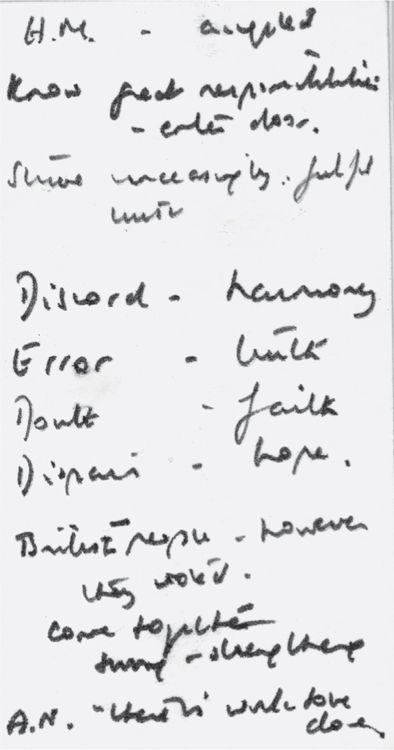 H.M. - accepted
Know great responsibilities
- enter door.
Strive unceasingly. fulfil
trust
Discord - harmony
Error - truth
Doubt - faith
Dispair - hope.
British people - however
they voted.
come together
strengthen
A.N. "there is work to be
done